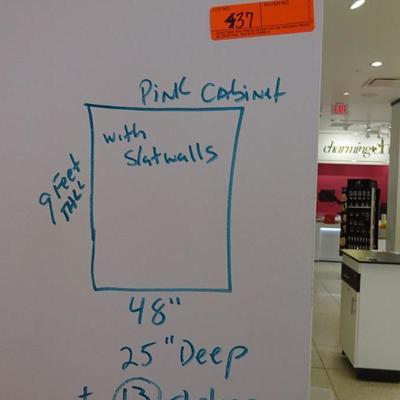 LOT NO.
437
Pink Cabinet
with
Slatwalls
9 Feet
TALL
48"
25" Deep
+ 13
EXIT
charming